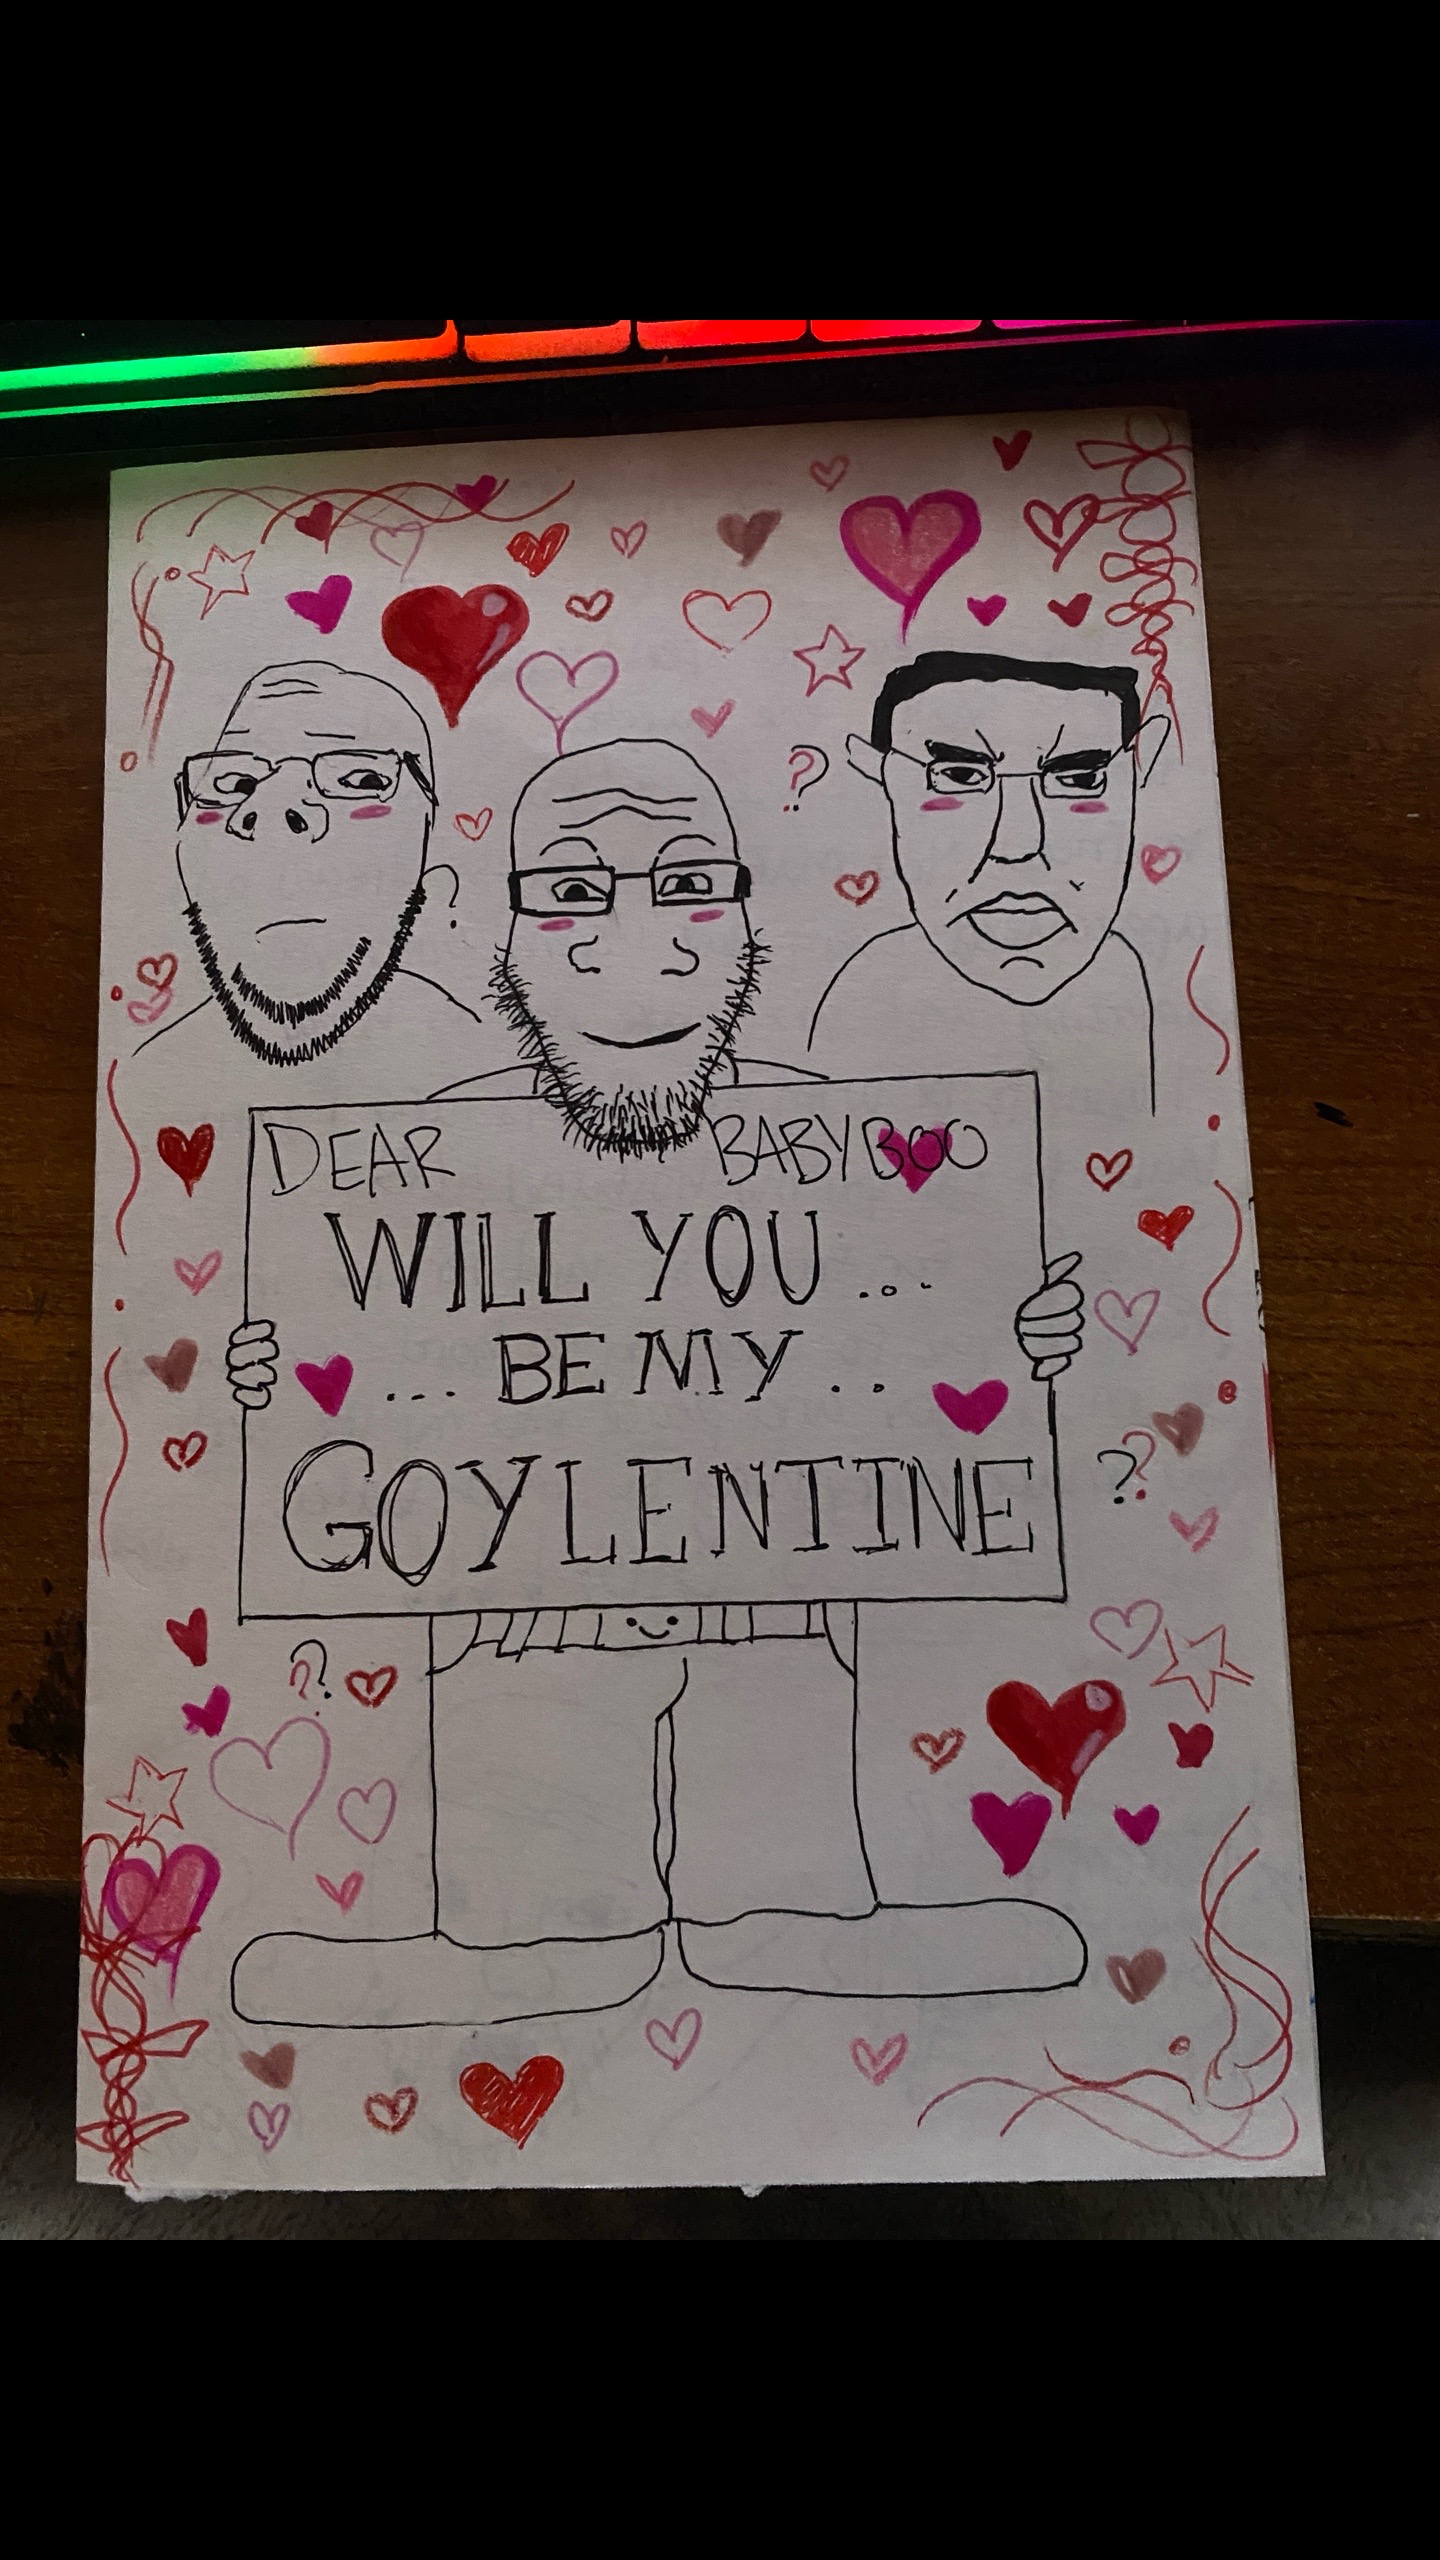 DEAR BABYBOO
WILL YOU...
... BE MY ..
GOYLENTINE
?
?
??
??